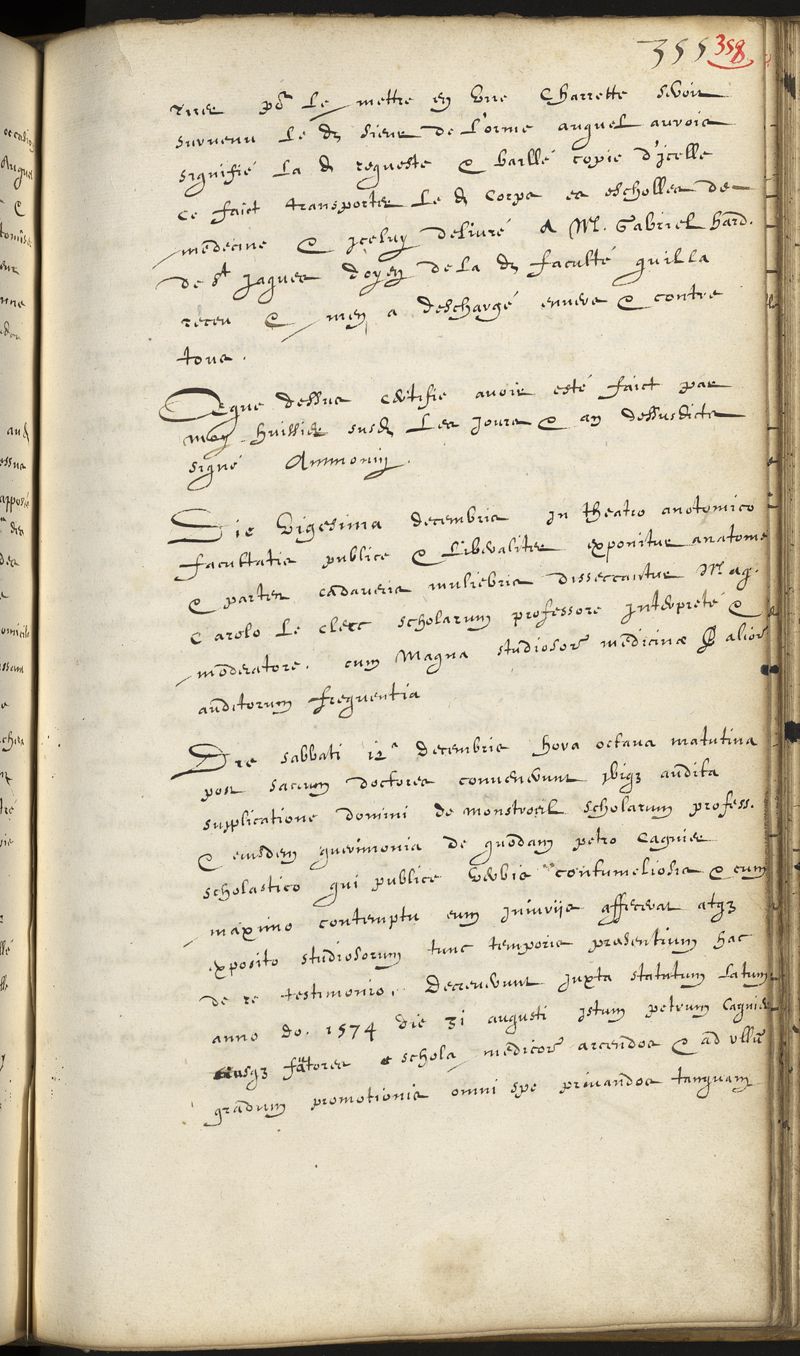 355 358
rues po.r le mettre en une charrette seroit
survenu le d. sieur de l'orme auquel aurois
signifié la d. requeste & baillé copie d'icelle
ce faict transporter le d. corps es escholles de
medecine & iceluy delivré A M. Gabriel hard.
de s.t Jaques doyen de la d. faculté qui lla
receu & men a deschargé envers & contre
tous.
Ceque dessus certifie avoir esté faict par
moy huissier susd. Les jours & an dessusdicts
signé Ammoniy.
Die vigesima decembris in theatro anotomico
facultatis publice & Liberaliter exponitur anatome
& partes cadaveris muliebris disseccantur M. ag.
Carolo Le clerc scholarum professore interprete &
moderatore. cum Magna studiosor. medicinæ & alior.
auditorum frequentia
Die sabbati 12a decembris hora octava matutina
post sacrum doctores convenerunt ibiq3 audita
supplicatione domini de monstroeil scholarum profess.
& eiusdem querimonia de quodam petro Cagnier
scholastico qui publice verbis contumeliosis & cum
maximo contemptu eum iniurijs affecerat atq3
exposito studiosorum tunc temporis præsentium hac
de re testimonio. Decreverunt juxta statutum Latum
anno do. 1574 die 31 augusti istum petrum Cagnier
eiusq3 fautores e schola medicor. arcendos & ad ullū
gradum promotionis omni spe privandos tanquam